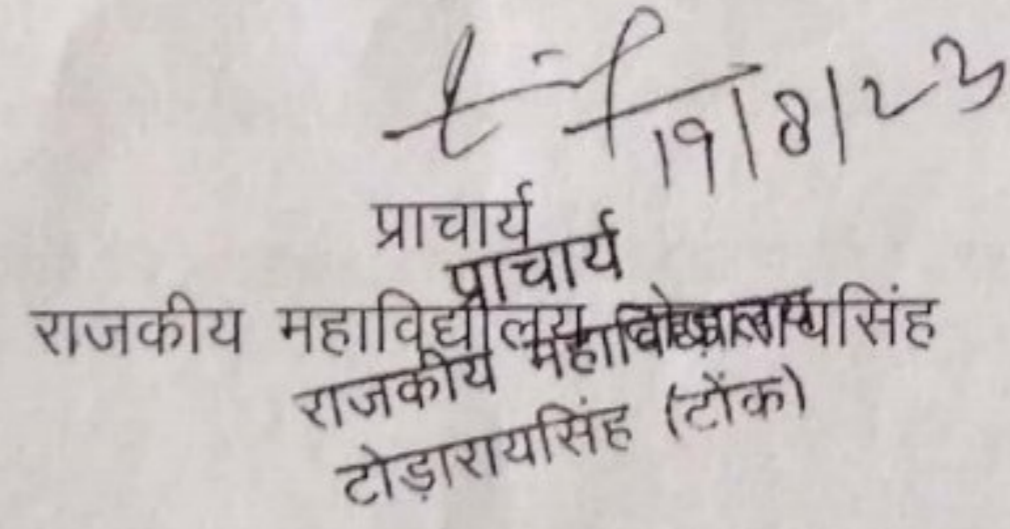 19/8/23
प्राचार्य
प्राचार्य
राजकीय महाविद्यालय टोड़ारायसिंह
राजकीय महाविद्यालय
टोड़ारायसिंह (टोंक)